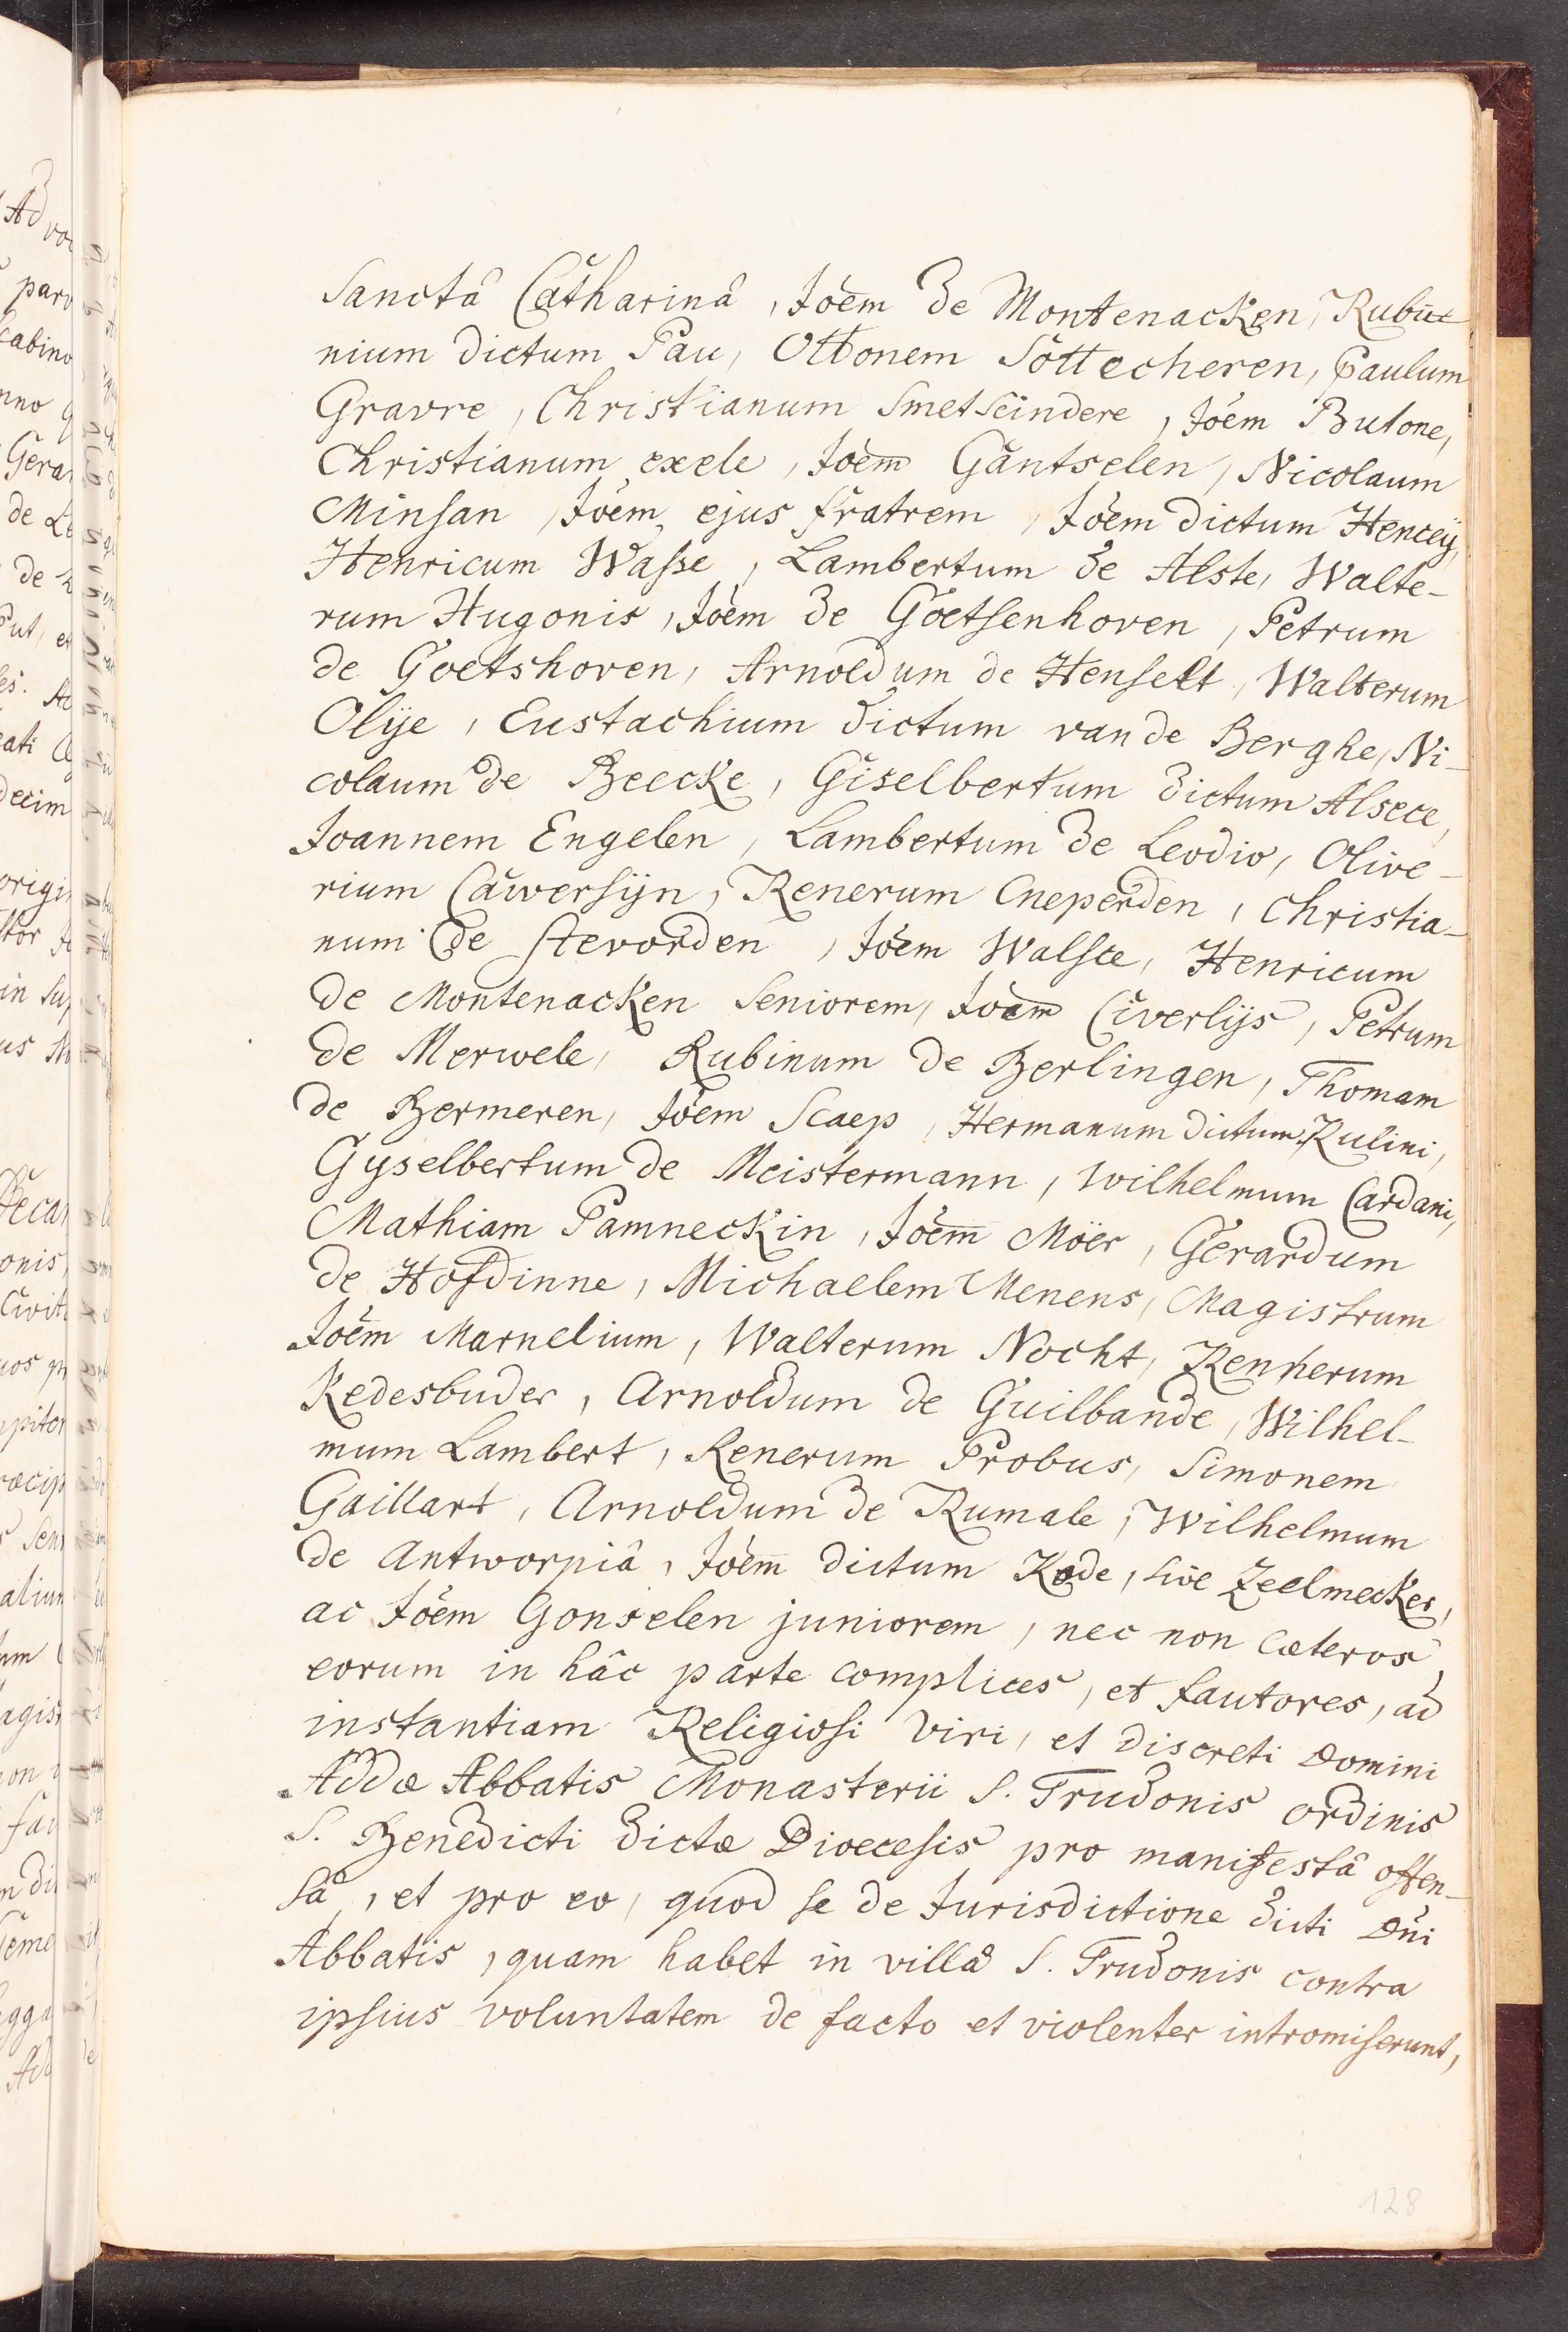 Sanctâ Catharinâ, Jõem de Montenacken, Rubut
nium dictum Pau, Ottonem Sottecheren, Paulum
Gravre, Christianum Smetscindere, Jõem Butone,
Christianum exele, Jõem Gantselen, Nicolaum
Minsan, Jõem ejus fratrem, Jõem dictum Henceÿ,
Henricum Wasse, Lambertum de Alste, Walte-
rum Hugonis, Jõem de Goetsenhoven, Petrum
de Goetshoven, Arnoldum de Henselt, Walterum
Olÿe, Eustachium dictum van de Berghe, Ni-
colaum de Beecke, Giselbertum dictum Alsece,
Joannem Engelen, Lambertum de Leodio, Olive-
rium Cawersÿn, Renerum Cneperden, Christia-
num de Stevorden, Jõem Walsce, Henricum
de Montenacken Seniorem, Jõem Civerlÿs, Petrum
de Merwele, Rubinum de Berlingen, Thomam
de Bermeren, Jõem Scaep, Hermanum dictum Rulini,
Gyselbertum de Meistermann, Wilhelmum Cardani,
Mathiam Pamneckin, Jõem Möer, Gerardum
de Hofdinne, Michaelem Menens, Magistrum
Jõem Marnelium, Walterum Nocht, Renherum
Kedesbuder, Arnoldum de Guilbande, Wilhel-
mum Lambert, Renerum Probus, Simonem
Gaillart, Arnoldum de Rumale, Wilhelmum
de Antworpiâ, Jõem dictum Kode, sive Zeelmecker,
ac Jõem Gonselen juniorem, nec non cæteros
eorum in hâc parte complices, et fautores, ad
instantiam Religiosi viri, et discreti Domini
Addæ Abbatis Monasterii S. Trudonis ordinis
S. Benedicti dictæ Dioecesis pro manifestâ offen-
sâ, et pro eo, quod se de Jurisdictione dicti Dñi
Abbatis, quam habet in villâ S. Trudonis contra
ipsius voluntatem de facto et violenter intromiserunt,
128